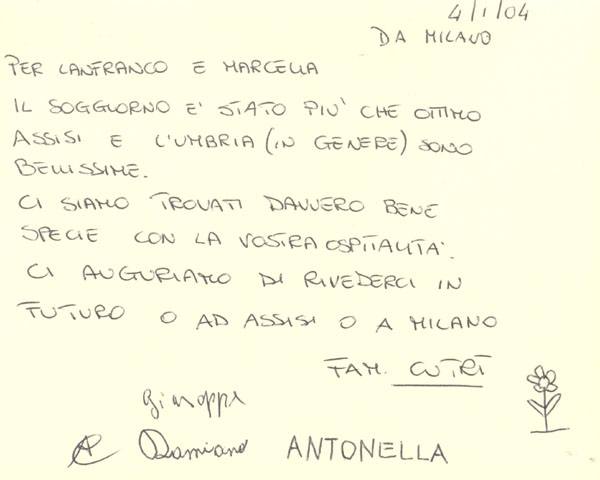 4/1/04
DA MILANO
PER LANFRANCO E MARCELLA
IL SOGGIORNO E' STATO PIU' CHE OTTIMO
ASSISI E L'UMBRIA (IN GENERE) SONO
BELLISSIME.
CI SIAMO TROVATI DAVVERO BENE
SPECIE CON LA VOSTRA OSPITALITA'.
CI AUGURIAMO DI RIVEDERCI IN
FUTURO O AD ASSISI O A MILANO
FAM. CUTRÌ
Giuseppe
Damiano ANTONELLA